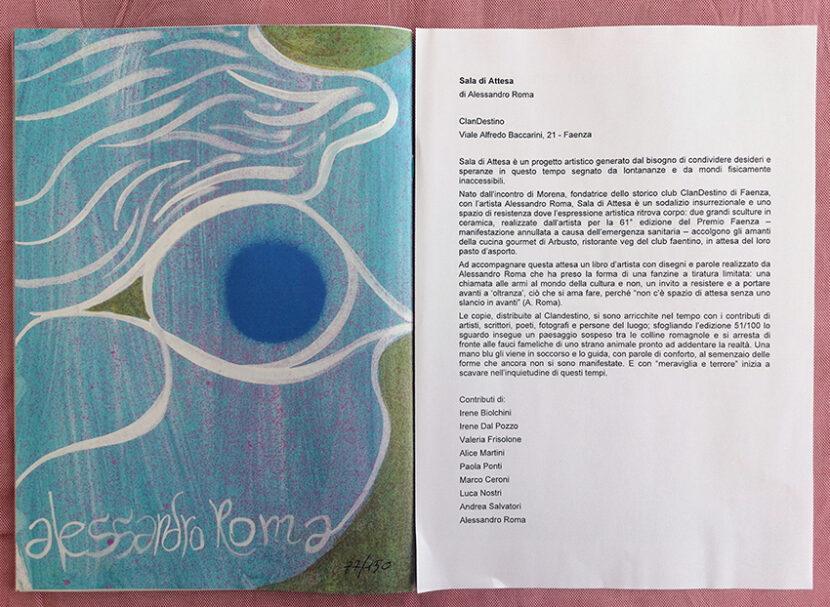 alessandro Roma
77/150
Sala di Attesa
di Alessandro Roma
ClanDestino
Viale Alfredo Baccarini, 21 - Faenza
Sala di Attesa è un progetto artistico generato dal bisogno di condividere desideri e
speranze in questo tempo segnato da lontananze e da mondi fisicamente
inaccessibili.
Nato dall'incontro di Morena, fondatrice dello storico club ClanDestino di Faenza,
con l'artista Alessandro Roma, Sala di Attesa è un sodalizio insurrezionale e uno
spazio di resistenza dove l'espressione artistica ritrova corpo: due grandi sculture in
ceramica, realizzate dall'artista per la 61° edizione del Premio Faenza –
manifestazione annullata a causa dell'emergenza sanitaria – accolgono gli amanti
della cucina gourmet di Arbusto, ristorante veg del club faentino, in attesa del loro
pasto d'asporto.
Ad accompagnare questa attesa un libro d'artista con disegni e parole realizzato da
Alessandro Roma che ha preso la forma di una fanzine a tiratura limitata: una
chiamata alle armi al mondo della cultura e non, un invito a resistere e a portare
avanti a 'oltranza', ciò che si ama fare, perché “non c'è spazio di attesa senza uno
slancio in avanti” (A. Roma).
Le copie, distribuite al Clandestino, si sono arricchite nel tempo con i contributi di
artisti, scrittori, poeti, fotografi e persone del luogo; sfogliando l'edizione 51/100 lo
sguardo insegue un paesaggio sospeso tra le colline romagnole e si arresta di
fronte alle fauci fameliche di uno strano animale pronto ad addentare la realtà. Una
mano blu gli viene in soccorso e lo guida, con parole di conforto, al semenzaio delle
forme che ancora non si sono manifestate. E con “meraviglia e terrore” inizia a
scavare nell'inquietudine di questi tempi.
Contributi di:
Irene Biolchini
Irene Dal Pozzo
Valeria Frisolone
Alice Martini
Paola Ponti
Marco Ceroni
Luca Nostri
Andrea Salvatori
Alessandro Roma